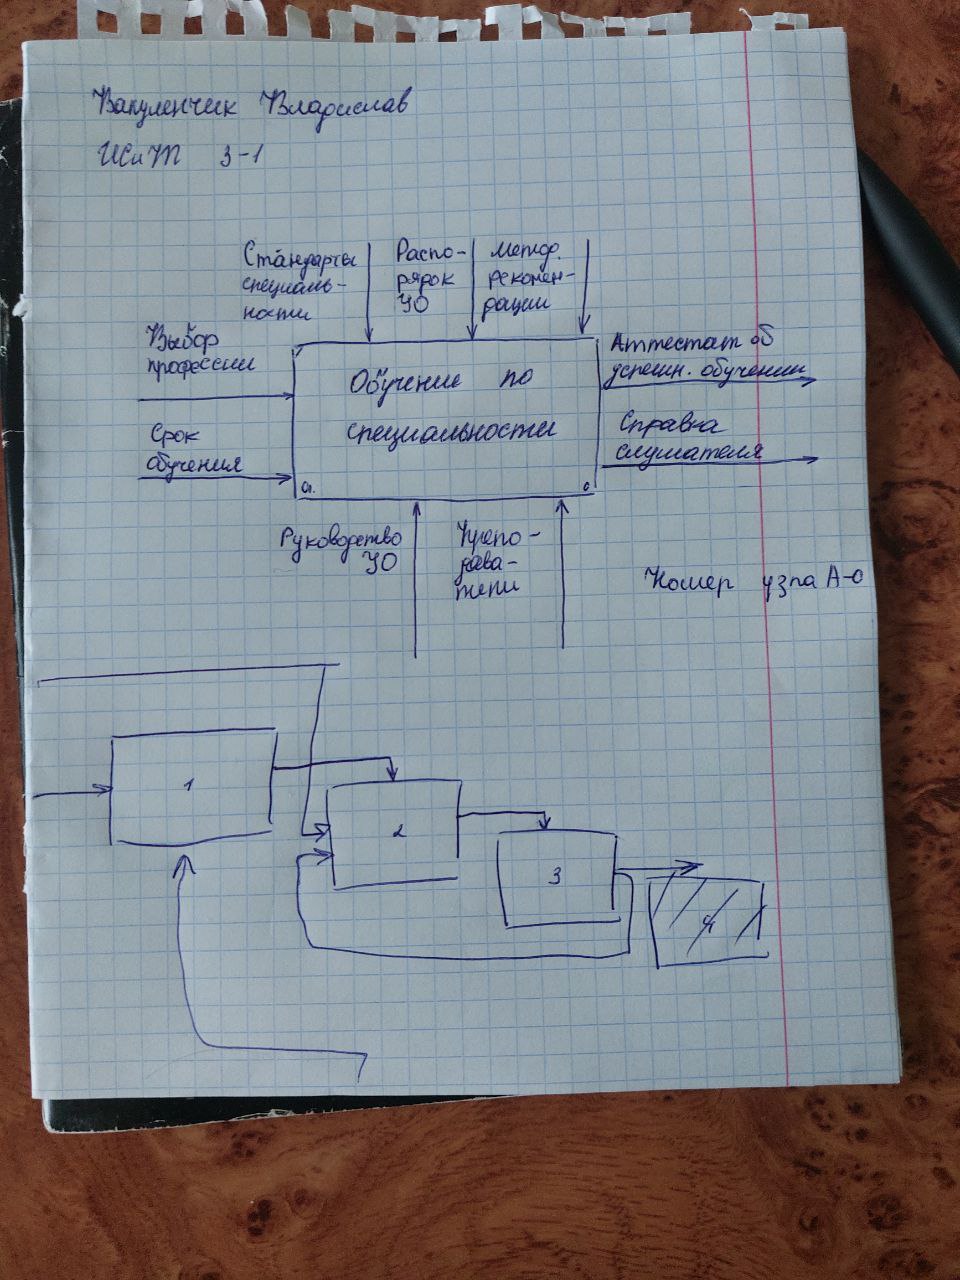 Вакуленчик Владислав
ИСиТ 3-1
Стандарты
специаль-
ности
Распо-
рядок
УО
Метод.
рекомен-
дации
Выбор
профессии
Срок
обучения
Обучение по
специальности
0
Аттестат об
успешн. обучении
Справка
слушателя
Руководство
УО
Препо-
дава-
тели
Номер узла А-0
1
2
3
4